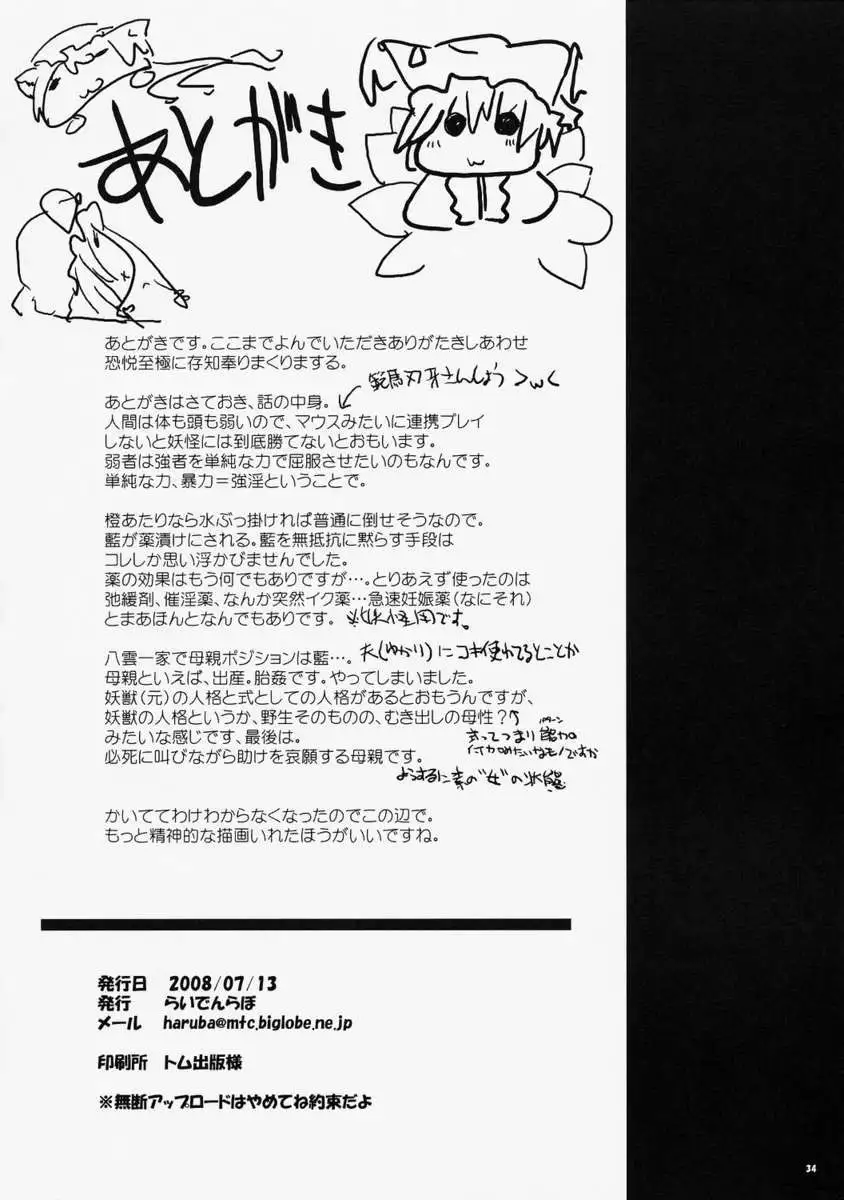 あとがき
あとがきです。ここまでよんでいただきありがたきしあわせ
恐悦至極に存知奉りまくりまする。
範馬刃牙さんしょう >w<
あとがきはさておき、話の中身。
人間は体も頭も弱いので、マウスみたいに連携プレイ
しないと妖怪には到底勝てないとおもいます。
弱者は強者を単純な力で屈服させたいのもなんです。
単純な力、暴力＝強淫ということで。
橙あたりなら水ぶっ掛ければ普通に倒せそうなので。
藍が薬漬けにされる。藍を無抵抗に黙らす手段は
コレしか思い浮かびませんでした。
薬の効果はもう何でもありですが…。とりあえず使ったのは
弛緩剤、催淫薬、なんか突然イク薬…急速妊娠薬（なにそれ）
とまあほんとなんでもありです。 ※妖怪用です。
八雲一家で母親ポジションは藍…。 夫(ゆかり)にコキ使われてるとことか
母親といえば、出産。胎姦です。やってしまいました。
妖獣（元）の人格と式としての人格があるとおもうんですが、
妖獣の人格というか、野生そのものの、むき出しの母性？
パターン
式ってつまり能力
付加みたいなモノですか
みたいな感じです、最後は。
必死に叫びながら助けを哀願する母親です。
ようするに素の"女"の状態
かいててわけわからなくなったのでこの辺で。
もっと精神的な描画いれたほうがいいですね。
発行日 2008/07/13
発行 らいでんらぼ
メール haruba@mtc.biglobe.ne.jp
印刷所 トム出版様
※無断アップロードはやめてね約束だよ
34